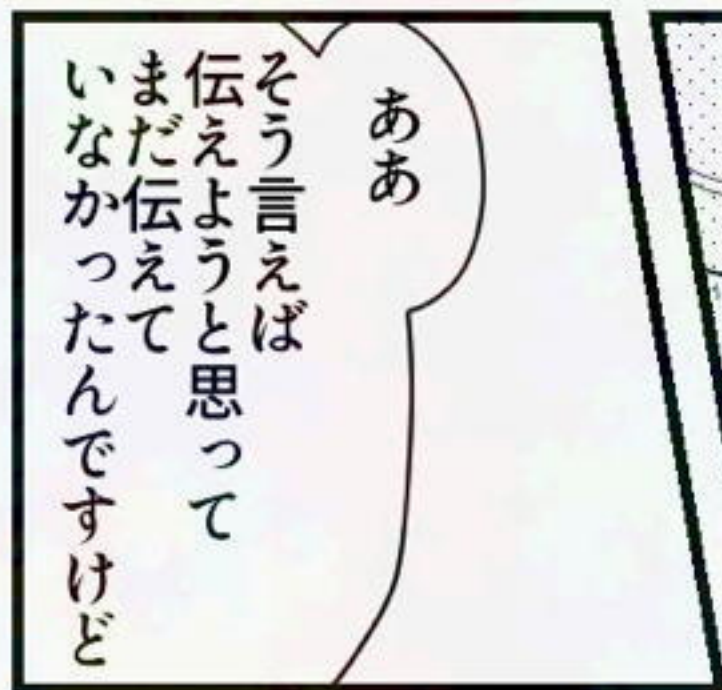 ああ
そう言えば
伝えようと思って
まだ伝えて
いなかったんですけど